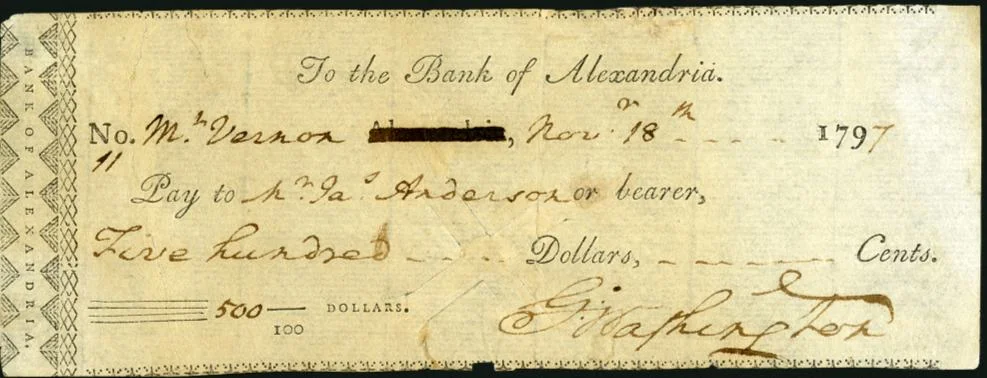 BANK OF ALEXANDRIA.
To the Bank of Alexandria.
No. Mt. Vernon, Novr. 18th 1797
11
Pay to Mr. Jas. Anderson or bearer,
Five hundred Dollars, Cents.
500 DOLLARS.
100
G:Washington